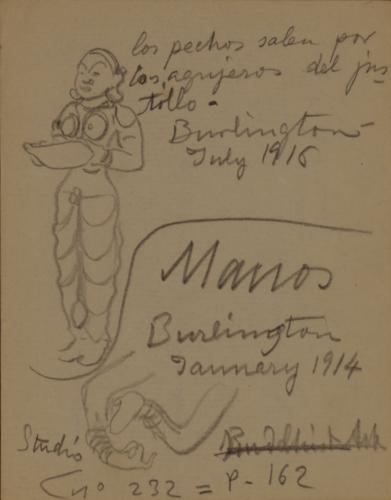 los pechos salen por
los agujeros del jus
tillo.
Burlington
July 1916
Manos
Burlington
January 1914
Buddhist Art
Studio
nº 232 = P. 162